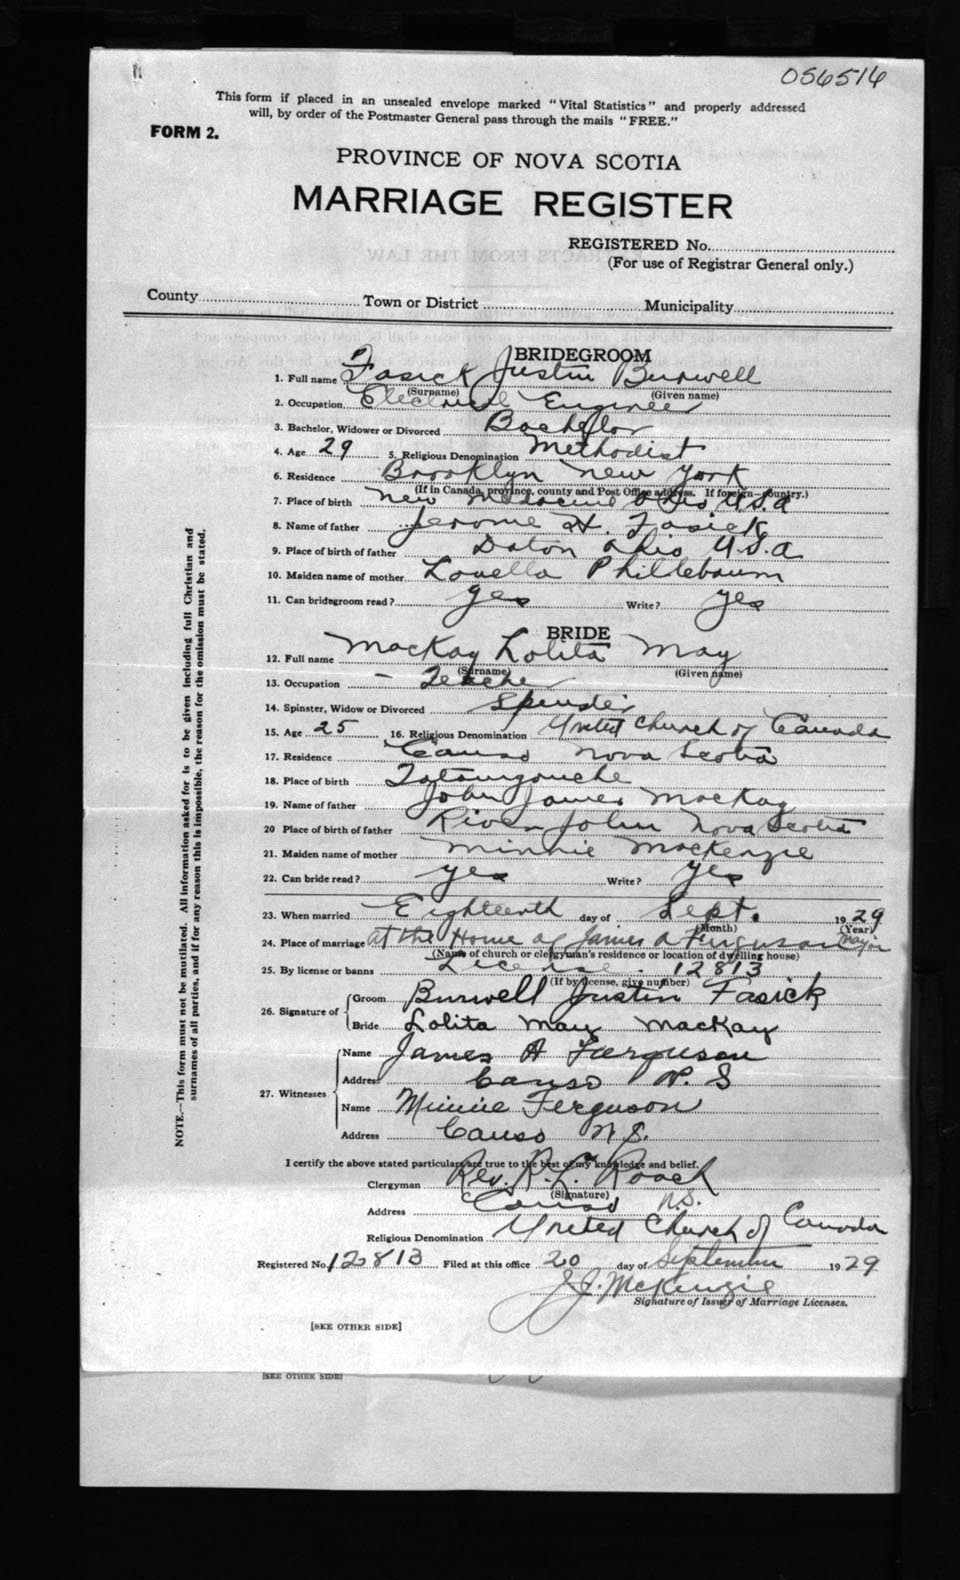 056516
This form if placed in an unsealed envelope marked "Vital Statistics" and properly addressed
will, by order of the Postmaster General pass through the mails "FREE."
FORM 2.
PROVINCE OF NOVA SCOTIA
MARRIAGE REGISTER
REGISTERED No.
(For use of Registrar General only.)
County Town or District Municipality
BRIDEGROOM
1. Full name Fasick Justin Burwell
(Surname) (Given name)
2. Occupation Electrical Engineer
3. Bachelor, Widower or Divorced Bachellor
4. Age 29 5. Religious Denomination Methodist
6. Residence Brooklyn New York
(If in Canada, province, county and Post Office address. If foreign—country.)
7. Place of birth New Madacine Ohio U.S.A
8. Name of father Jerome H. Fasick
9. Place of birth of father Daton Ohio U.S.A
10. Maiden name of mother Louella Philtebaum
11. Can bridegroom read? yes Write? yes
BRIDE
12. Full name MacKay Lolita May
(Surname) (Given name)
13. Occupation - Teacher
14. Spinster, Widow or Divorced Spinster
15. Age 25 16. Religious Denomination United Church of Canada
17. Residence Canso Nova Scotia
18. Place of birth Tatamgouche
19. Name of father John James MacKay
20 Place of birth of father River John Nova Scotia
21. Maiden name of mother Minnie MacKenzie
22. Can bride read? yes Write? yes
23. When married Eighteenth day of Sept. 1929
(Month) (Year)
24. Place of marriage At the Home of James A Ferguson Mayor
(Name of church or clergyman's residence or location of dwelling house)
25. By license or banns License. 12813
(If by license, give number)
26. Signature of Groom Burwell Justin Fasick
Bride Lolita May MacKay
27. Witnesses Name James A Ferguson
Address Canso N.S
Name Minnie Ferguson
Address Canso N.S.
I certify the above stated particulars are true to the best of my knowledge and belief.
Clergyman Rev. R. L. Roach
(Signature)
Address Canso N.S.
Religious Denomination United Church of Canada
Registered No. 12813 Filed at this office 20 day of September 1929
J.J. McKenzie
Signature of Issuer of Marriage Licenses.
[SEE OTHER SIDE]
[SEE OTHER SIDE]
NOTE.—This form must not be mutilated. All information asked for is to be given including full Christian and
surnames of all parties, and if for any reason this is impossible, the reason for the omission must be stated.